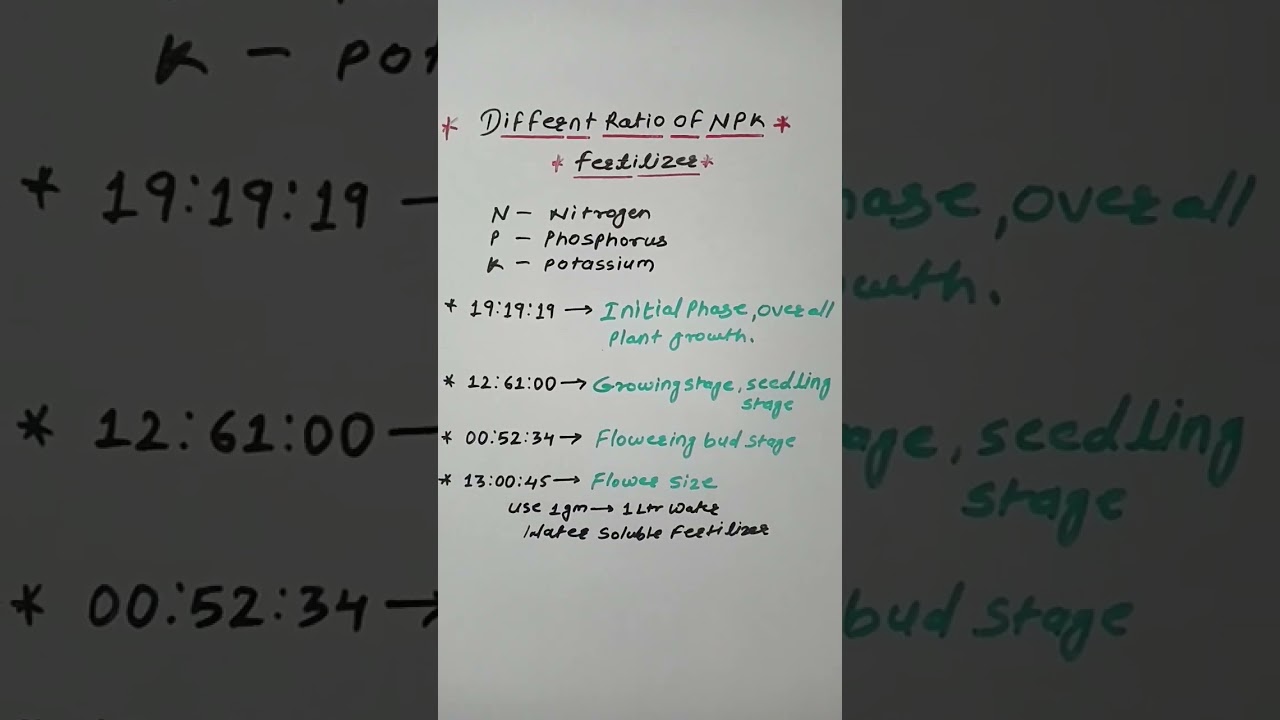 * Differnt Ratio of NPK *
* fertilizer *
N - Nitrogen
P - Phosphorus
K - potassium
* 19:19:19 → Initial Phase, over all
plant growth.
* 12:61:00 → Growing stage, seedling
stage
* 00:52:34 → Flowering bud stage
* 13:00:45 → Flower size
use 1gm → 1 Ltr water
Water soluble Fertilizer